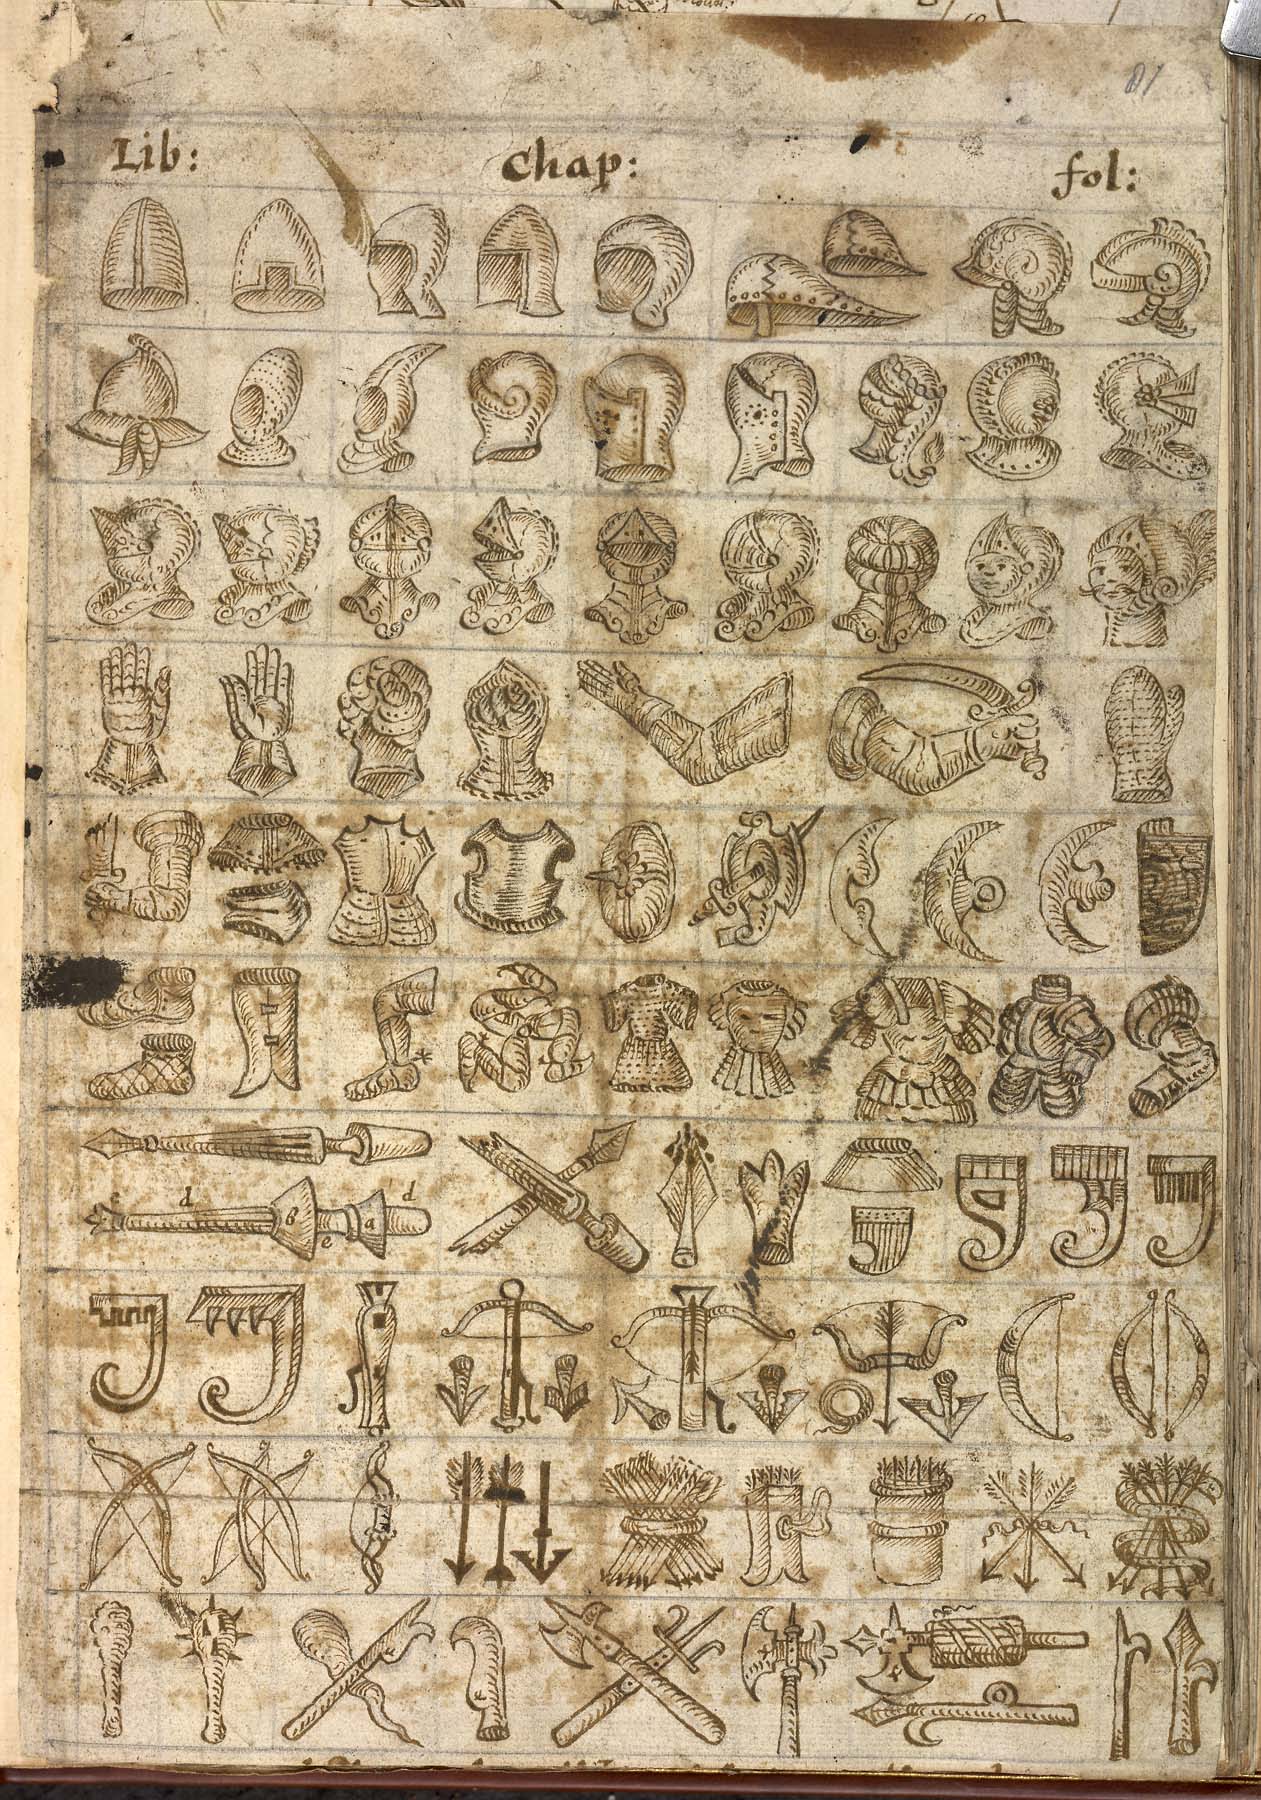 81
Lib: Chap: fol:
c d d
B a
e